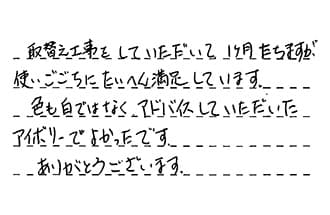 取替え工事をしていただいて、1ヶ月たちますが
使いごごちにたいへん満足しています。
色も白ではなく、アドバイスしていただいた
アイボリーでよかったです。
ありがとうございます。